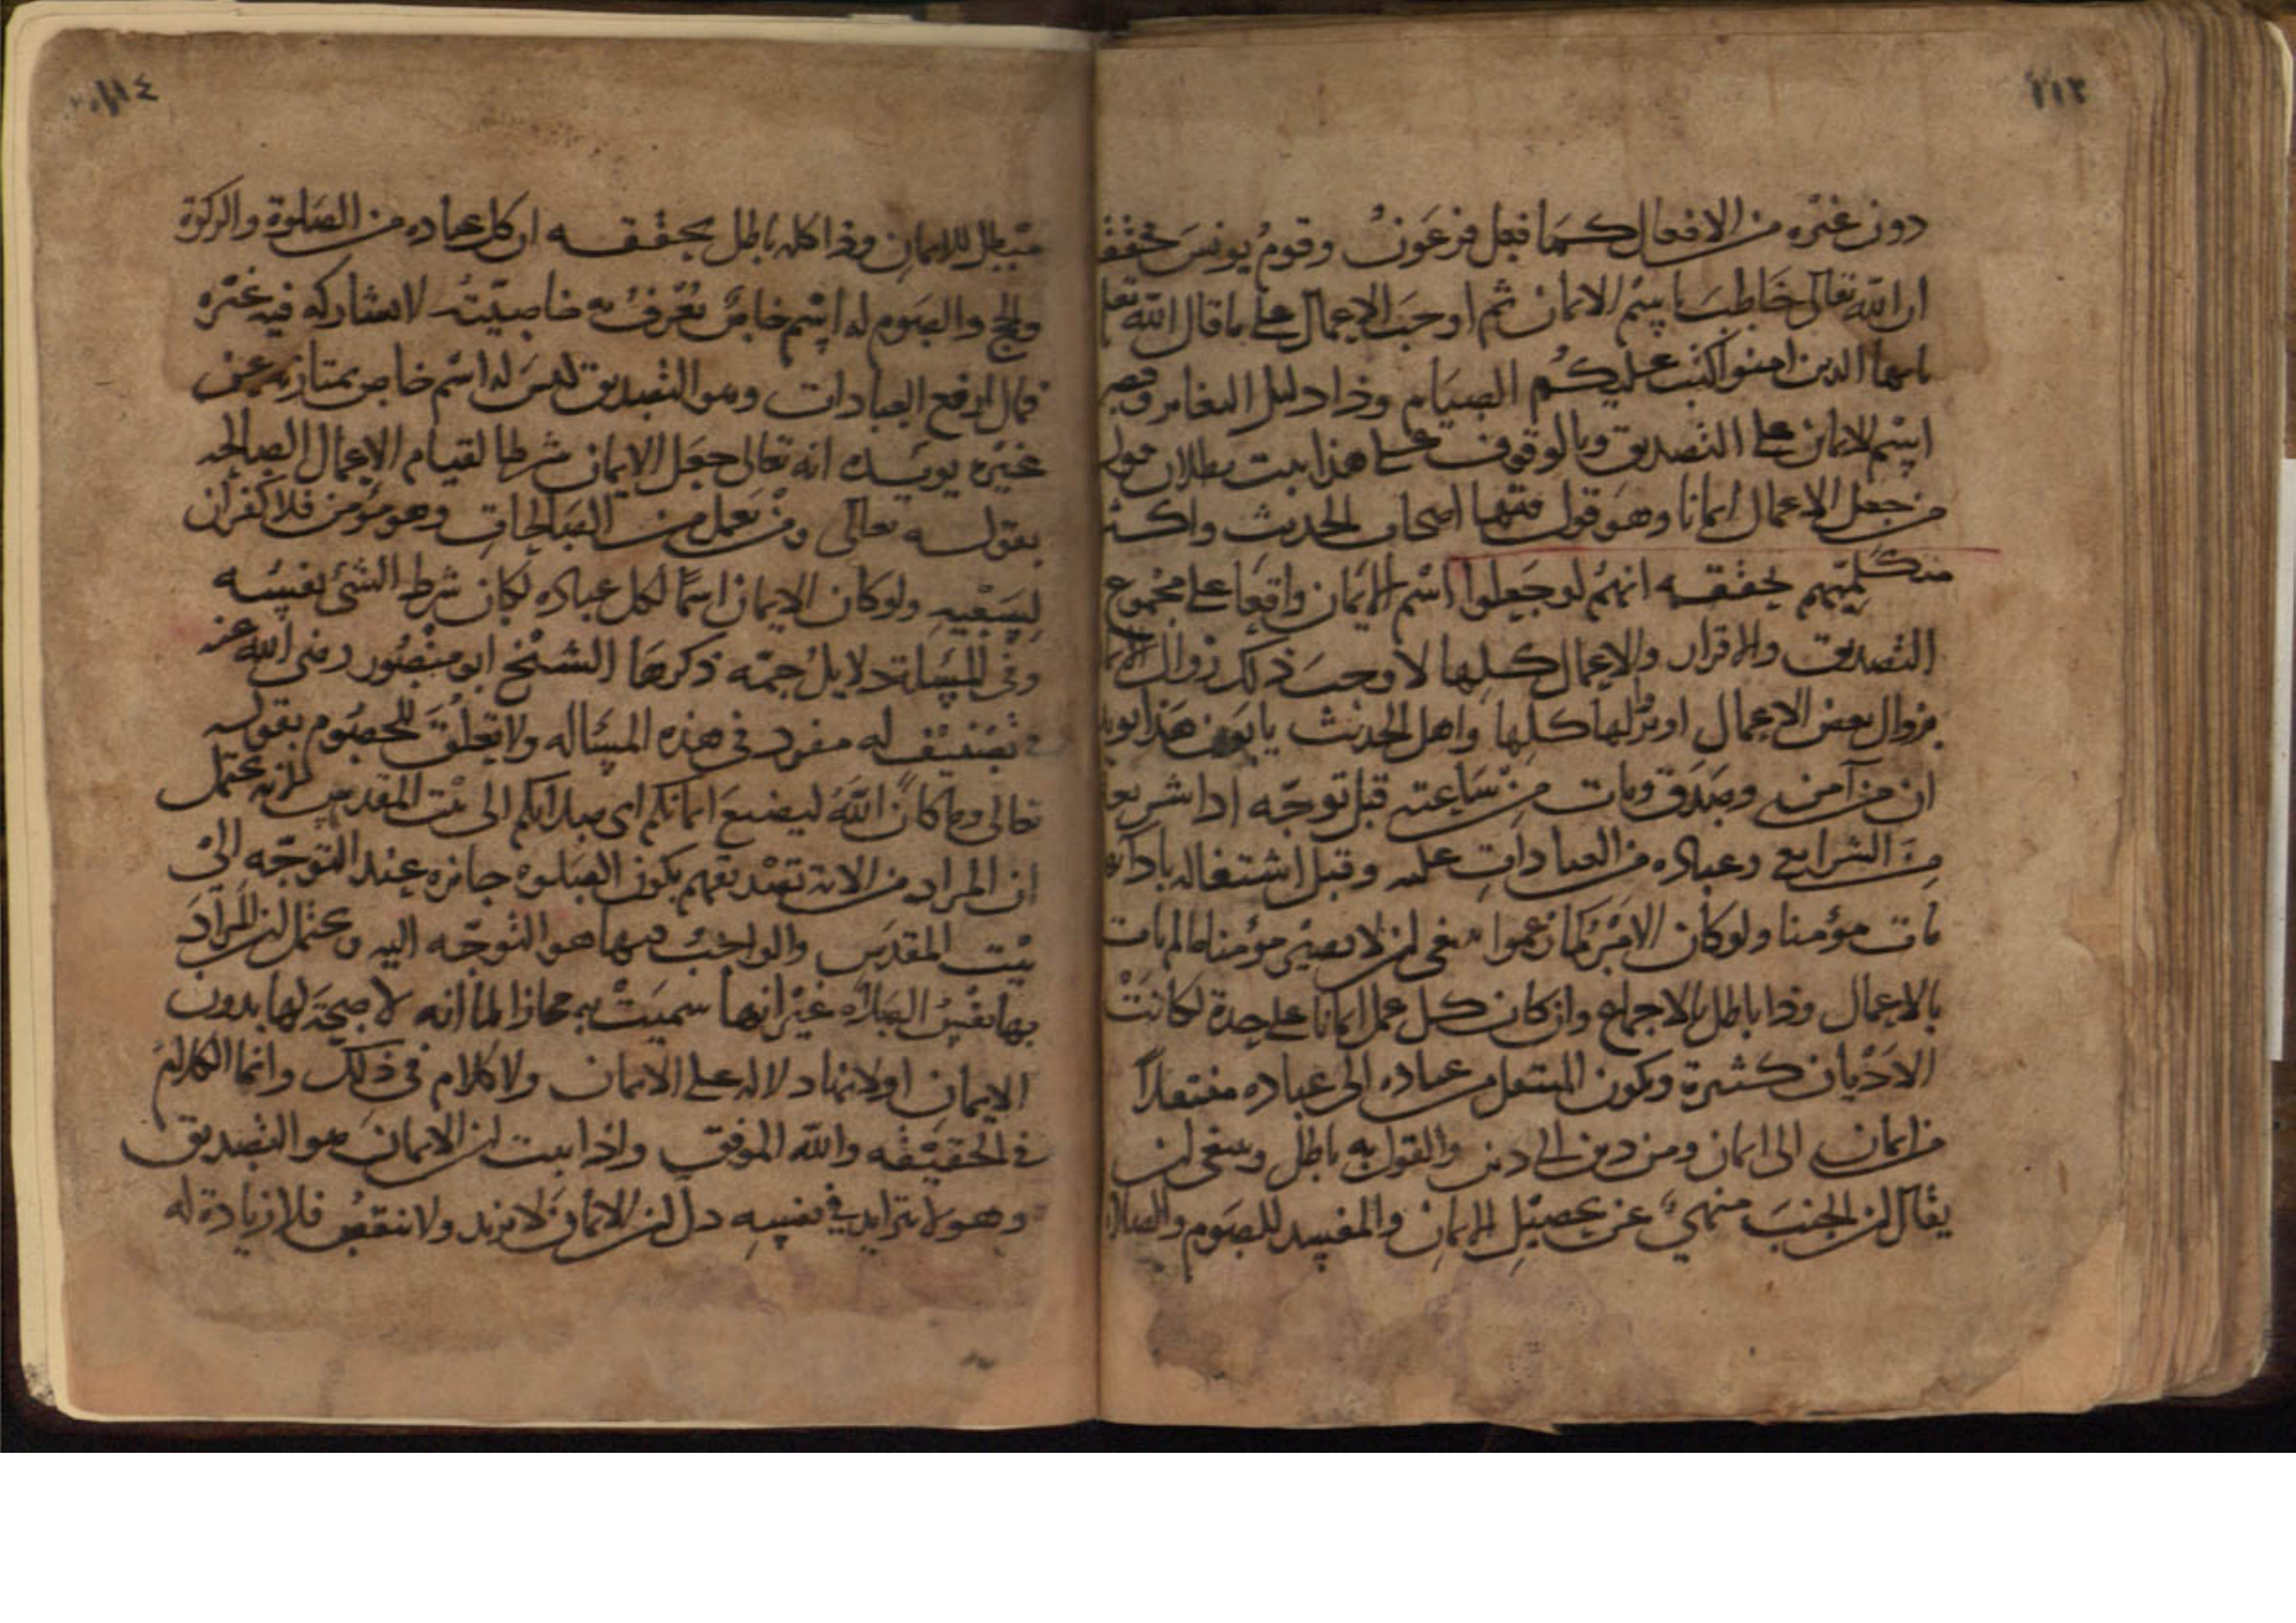 ٢١٣
دون غيره من الافعال كما فعل فرعون وقوم يونس يحققه
ان الله تعالى خاطب باسم الايمان ثم اوجب الاعمال على ما قال الله تعا
يا ايها الذين امنوا كتب عليكم الصيام وذا دليل التغاير وقصر
اسم الايمان على التصديق وبالوقوف على هذا يثبت بطلان قول
من جعل الاعمال ايمانا وهو قول فقهاء اصحاب الحديث واكثر
متكلميهم يحققه انهم لو جعلوا اسم الايمان واقعا على مجموع
التصديق والاقرار والاعمال كلها لاوجب ذلك زوال الايما
بزوال بعض الاعمال او بزوالها كلها واهل الحديث يابون هذا
ان من آمن وصدق ومات من ساعته قبل توجه اداء شريعة
من الشرايع وعبادة من العبادات عليه وقبل اشتغاله بادائه
مات مؤمنا ولو كان الامر كما زعموا ينبغي ان لا يصير مؤمنا ما لم يات
بالاعمال وذا باطل بالاجماع وان كان كل عمل ايمانا على حدة لكانت
الاديان كثيرة ويكون المنتقل من عبادة الى عبادة منتقلا
من ايمان الى ايمان ومن دين الى دين والقول به باطل وينبغي ان
يقال ان الجنب منهي عن تحصيل الايمان والمفسد للصوم والصلاة
٢١٤
مبطل للايمان وذا كله باطل يحققه ان كل عبادة من الصلوة والزكوة
والحج والصوم له اسم خاص يعرف به خاصيته لا يشاركه فيه غيره
فمال ارفع العبادات وهو التصديق ليس له اسم خاص يمتاز به عن
غيره يويده انه تعالى جعل الايمان شرطا لقيام الاعمال الصالحه
بقوله تعالى ومن يعمل من الصالحات وهو مؤمن فلا كفران
لسعيه ولو كان الايمان اسما لكل عبادة لكان شرط الشئ نفسه
وفي المسالة دلايل جمه ذكرها الشيخ ابو منصور رضى الله عنه
في تصنيف له مفرد في هذه المساله ولا تعلق للخصوم بقوله
تعالى وما كان الله ليضيع ايمانكم اى صلاتكم الى بيت المقدس لانه يحتمل
ان المراد من الاية تصديقهم بكون الصلوة جائزة عند التوجه الى
بيت المقدس والواجب فيها هو التوجه اليه ويحتمل ان المراد
بها نفس الصلاة غير انها سميت به مجازا لما انه لا صحة لها بدون
الايمان او لانها دلالة على الايمان ولا كلام في ذلك وانما الكلام
في الحقيقه والله الموفق واذا ثبت ان الايمان هو التصديق
وهو لا يتزايد في نفسه دل ان الايمان لا يزيد ولا ينقص فلا زيادة له